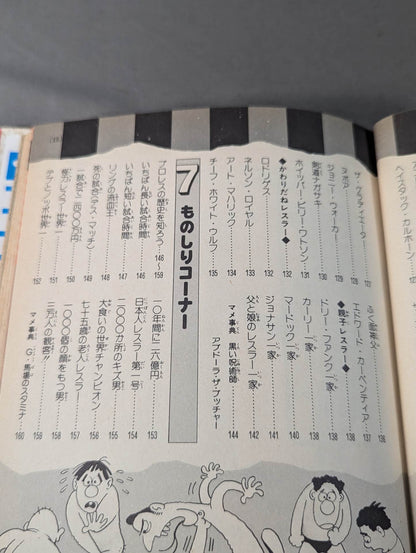 ヘイスタック・カルホーン
ザ・グラディエーター 127
ジョニー・ウォーカー 129
剣道ナガサキ 130
ホイッパー・ビリー・ワトソン 131
◆かわりだねレスラー◆
ロドリゲス 132
ネルソン・ロイヤル 133
アート・マハリック 134
チーフ・ホワイト・ウルフ 135
ふく面神父 136
エドワード・カーペンティア 137
◆親子レスラー◆
ドリー・ファンク一家 138
カーリー一家 138
マードック一家 140
ジョナサン一家 141
父と娘のレスラー一家 142
マメ事典 黒い呪術師
アブドーラ・ザ・ブッチャー 144
7 ものしりコーナー
プロレスの歴史を知ろう 146〜159
いちばん長い試合時間 146
いちばん短い試合時間 147
リングの流血王 148
死の試合(デス・マッチ) 149
一試合で二四〇〇万円 150
怪力レスラー世界一 151
デブとノッポ世界一 152
一〇年間に二六億円 153
日本人レスラー第一号 154
二〇〇〇か所のキズ男 155
大食いの世界チャンピオン 156
七十五歳の老人レスラー 157
一〇〇〇個の顔をもつ男 158
三万人の観客!! 159
マメ事典 G・馬場のスタミナ 160